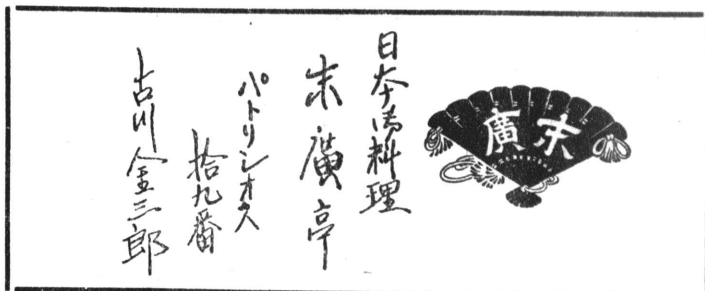 日本御料理
末廣亭
パトリシオス
拾九番
古川金三郎
末廣